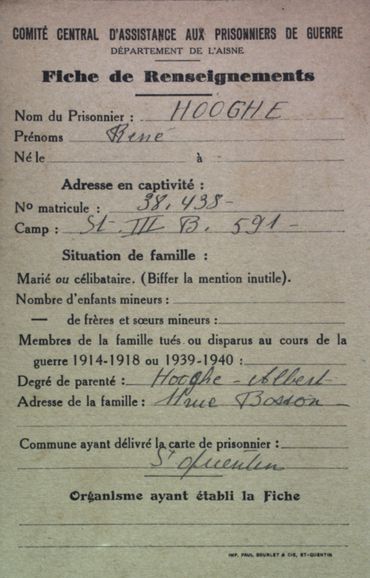 COMITÉ CENTRAL D'ASSISTANCE AUX PRISONNIERS DE GUERRE
DÉPARTEMENT DE L'AISNE
Fiche de Renseignements
Nom du Prisonnier : HOOGHE
Prénoms René
Né le à
Adresse en captivité :
No matricule : 38.438-
Camp : St. III B. 591-
Situation de famille :
Marié ou célibataire. (Biffer la mention inutile).
Nombre d'enfants mineurs :
— de frères et sœurs mineurs :
Membres de la famille tués ou disparus au cours de la
guerre 1914-1918 ou 1939-1940 :
Degré de parenté : Hooghe - Albert
Adresse de la famille : rue Bosson
Commune ayant délivré la carte de prisonnier :
St Quentin
Organisme ayant établi la Fiche
IMP. PAUL BOURLET & CIE, ST-QUENTIN